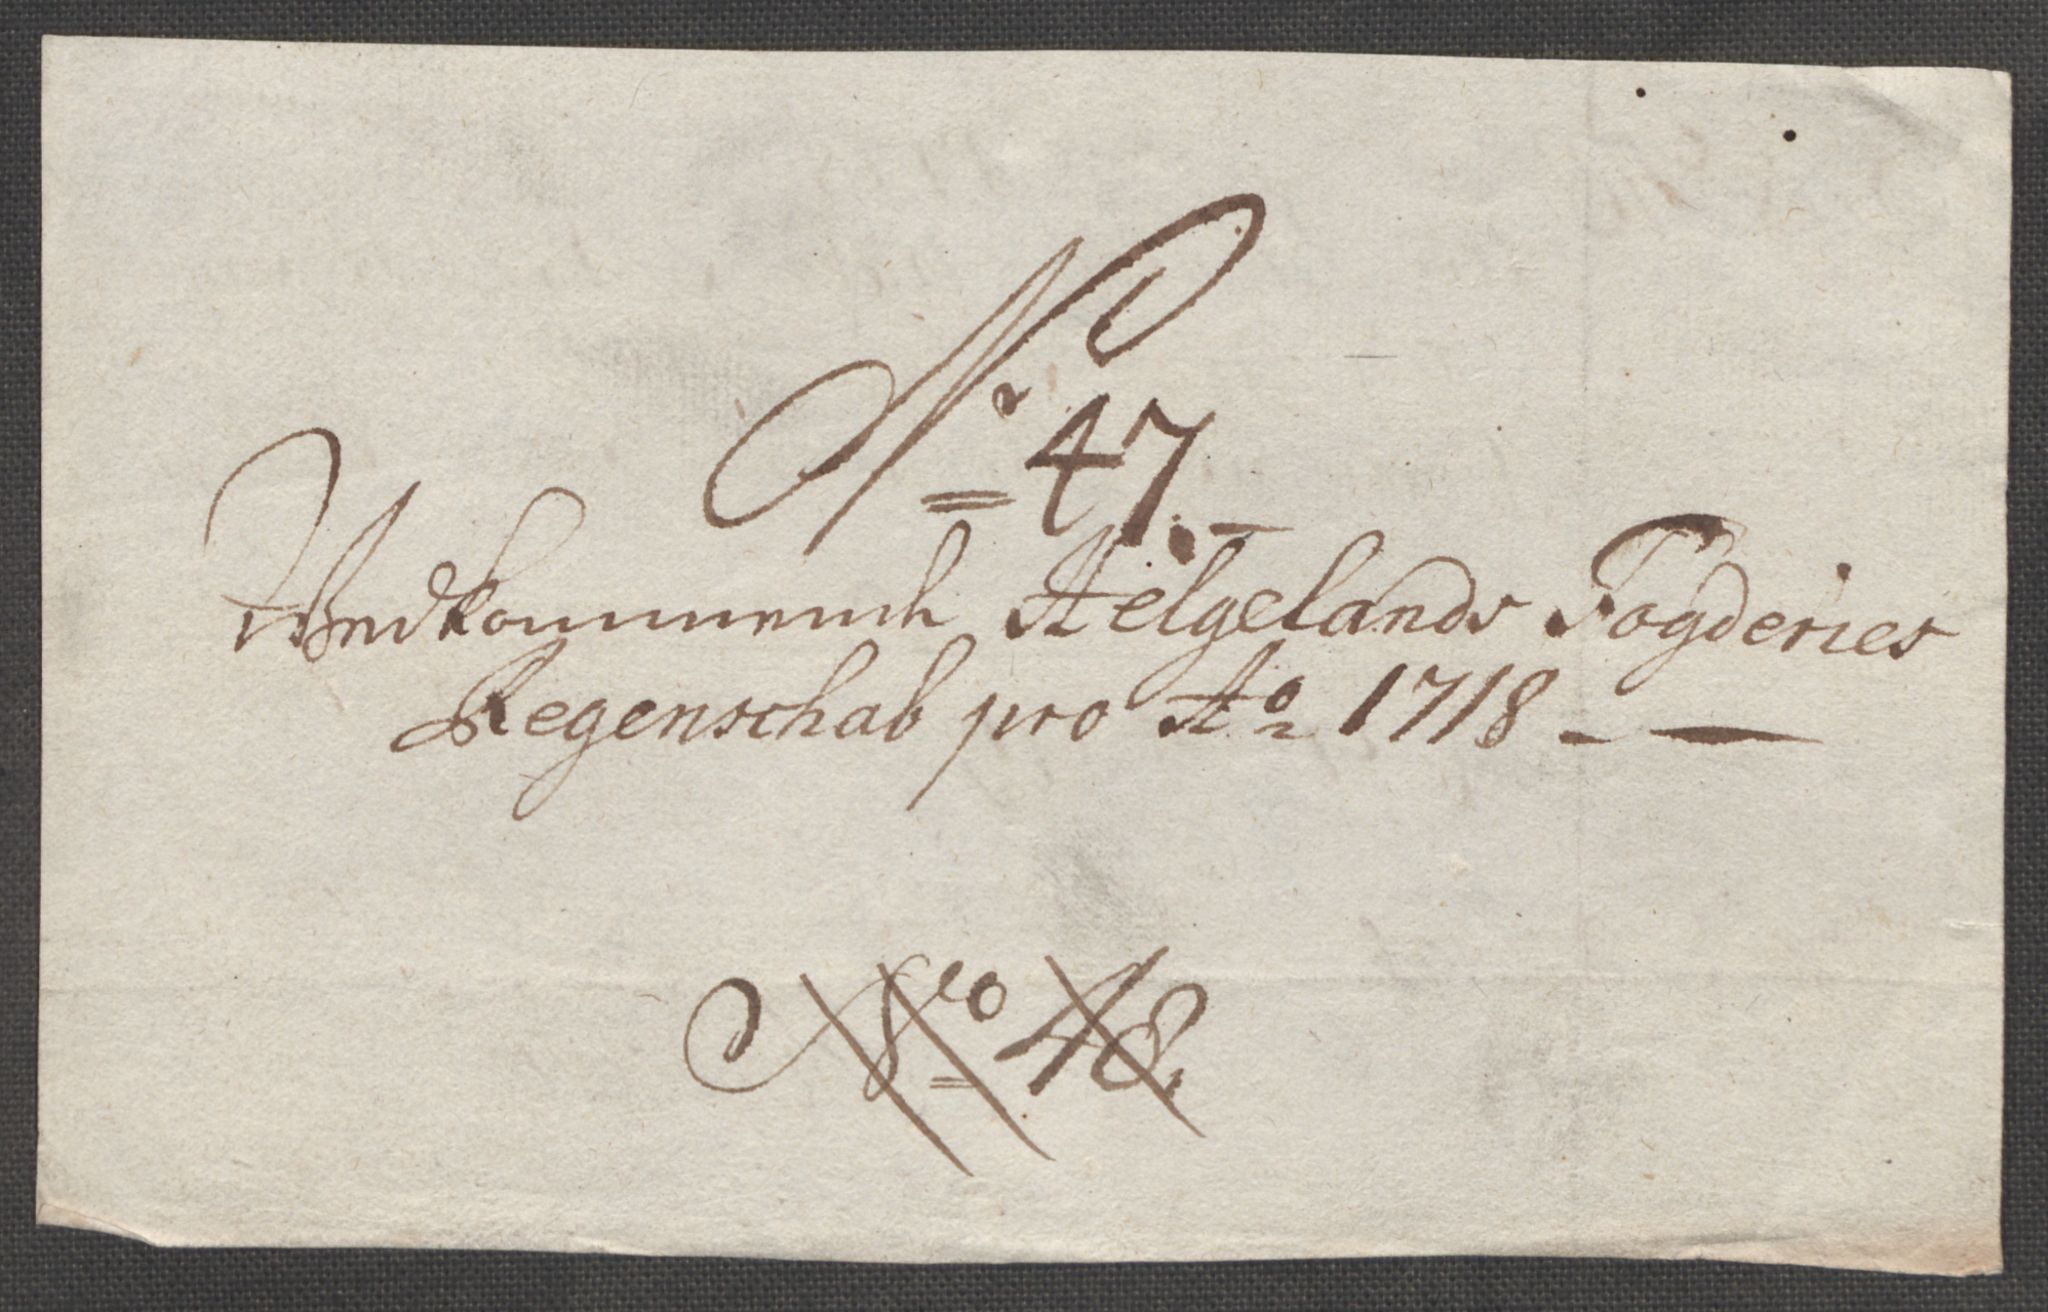 No 47.
Wedkommende Helgelands Fogderies
Regenschab pro Ao 1718
No 48.